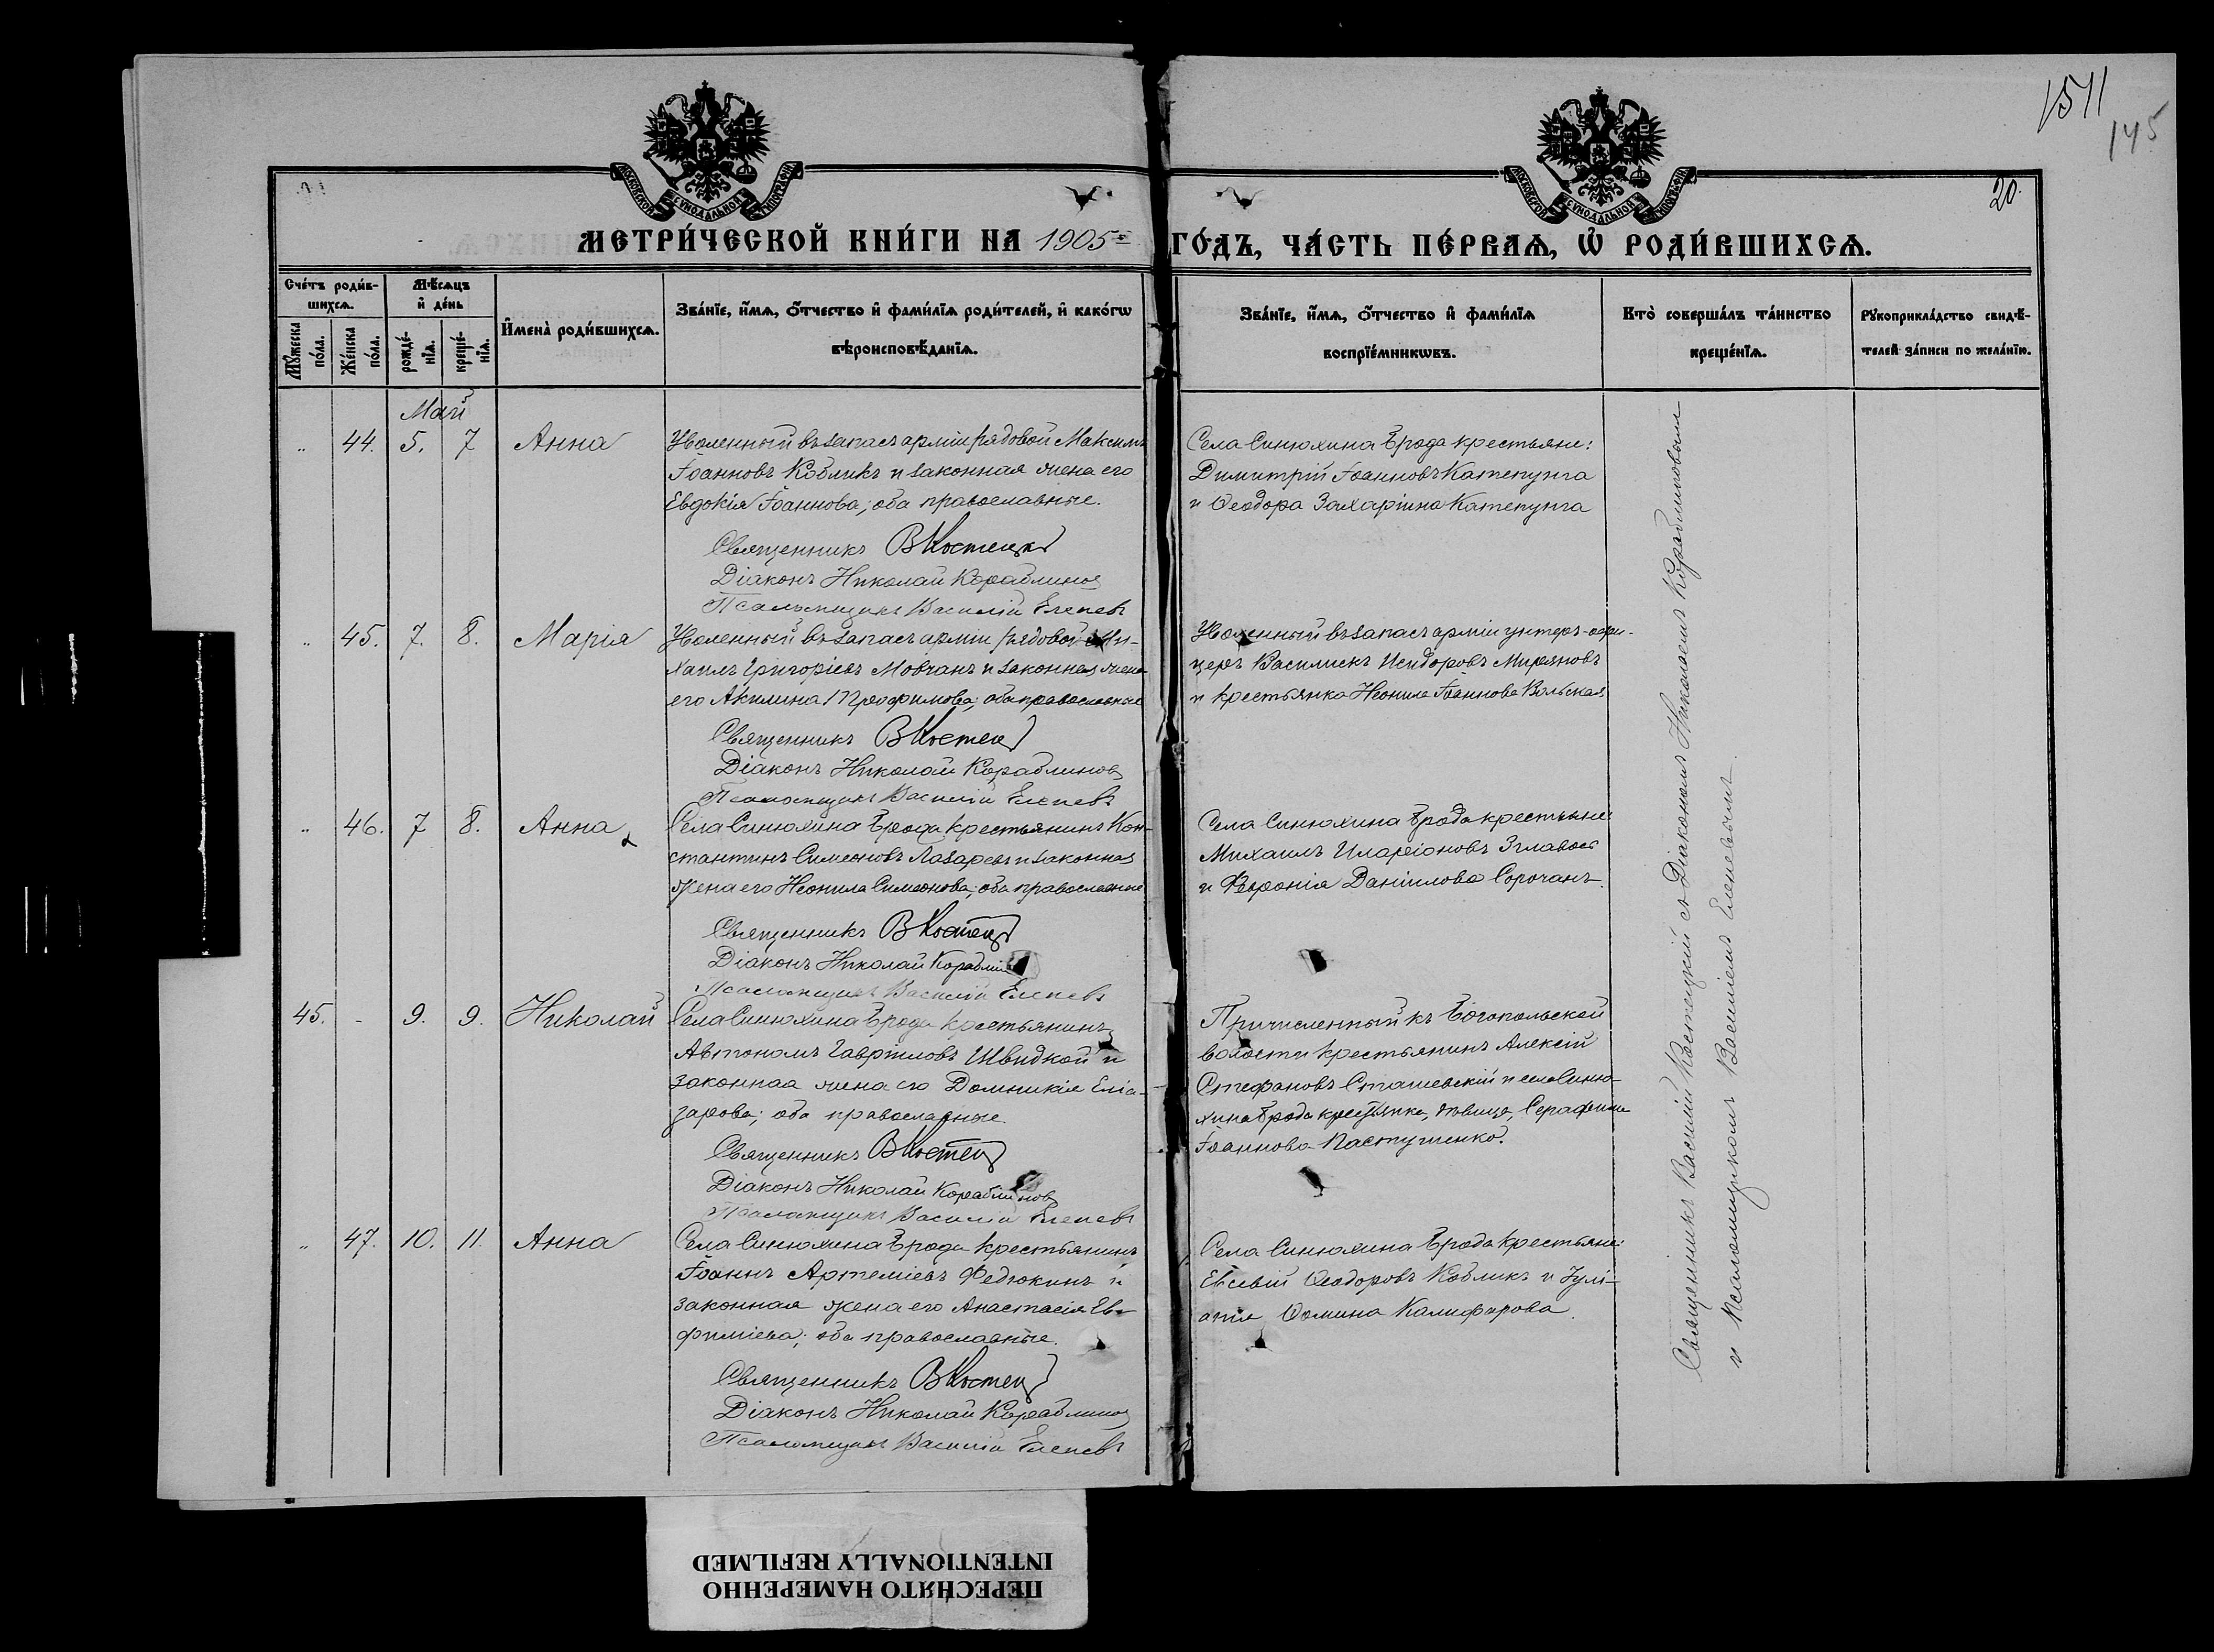 1511
145
20.
МОСКОВСКОЙ СѴНОДАЛЬНОЙ ТИПОГРАФІИ
МОСКОВСКОЙ СѴНОДАЛЬНОЙ ТИПОГРАФІИ
МЕТРИ́ЧЕСКОЙ КНИ́ГИ НА 1905 ГО́ДЪ, ЧА́СТЬ ПЕ́РВАѦ, Ѡ҆ РОДИ́ВШИХСѦ.
Сче́тъ роди́в-
шихсѧ.
Мꙋ́жеска по́ла.
Же́нска по́ла.
Мѣ́сѧцъ
и҆ де́нь
рожде́-
нїѧ.
креще́-
нїѧ.
И҆мена̀ роди́вшихсѧ.
Зва́нїе, и҆́мѧ, ѻ҆́тчество и҆ фами́лїѧ роди́телей, и҆ како́гѡ
вѣроисповѣ́данїѧ.
Зва́нїе, и҆́мѧ, ѻ҆́тчество и҆ фами́лїѧ
воспрїе́мникѡвъ.
Кто̀ соверша́лъ та́инство
креще́нїѧ.
Рꙋкоприкла́дство свидѣ́-
телей за́писи по жела́нїю.
Май
" 44. 5. 7 Анна
Уволенный въ запасъ арміи рядовой Максимъ
Іоанновъ Кобликъ и законная жена его
Евдокія Іоаннова; оба православные.
Священникъ В Костецкі
Діаконъ Николай Кораблиновъ
Псаломщикъ Василій Елепевъ
Села Синюхина Брода крестьяне:
Димитрій Іоанновъ Катепунга
и Ѳеодора Захаріина Катепунга
" 45. 7. 8. Марія
Уволенный въ запасъ арміи рядовой Ми-
хаилъ Григоріевъ Мовчанъ и законная жена
его Акилина Трофимова; оба православные
Священникъ В Костец
Діаконъ Николай Кораблиновъ
Псаломщикъ Василій Елепевъ
Уволенный въ запасъ арміи унтеръ-офи-
церъ Василискъ Исидоровъ Мироновъ
и крестьянка Неонила Іоаннова Вольская
" 46. 7 8. Анна
Села Синюхина Брода крестьянинъ Кон-
стантинъ Симеоновъ Лазаревъ и законная
жена его Неонила Симеонова; оба православные
Священникъ В Костец
Діаконъ Николай Корабли
Псаломщикъ Василій Елепевъ
Села Синюхина Брода крестьяне:
Михаилъ Иларіоновъ
и Февронія Даніилова Сорочанъ.
45. - 9. 9. Николай
Села Синюхина Брода крестьянинъ
Автономъ Гавріиловъ Швидкой и
законная жена его Домникія Еліа-
зарова; оба православные.
Священникъ В Костец
Діаконъ Николай Кораблиновъ
Псаломщикъ Василій Елепевъ
Причисленный къ Богопольской
волости крестьянинъ Алексій
Стефановъ Сташевскій и села Синю-
хина Брода крестьянка, дѣвица, Серафима
Іоаннова Пастушенко.
" 47. 10. 11. Анна
Села Синюхина Брода крестьянинъ
Іоаннъ Артеміевъ Федюкинъ и
законная жена его Анастасія Ев-
фиміева; оба православные.
Священникъ В Костец
Діаконъ Николай Кораблиновъ
Псаломщикъ Василій Елепевъ
Села Синюхина Брода крестьяне:
Евсевій Ѳеодоровъ Кобликъ и Іулі-
анія Ѳомина Калифарова.
Священникъ Василій Костецкій съ Діакономъ Николаемъ Кораблиновымъ
и Псаломщикомъ Василіемъ Елепевымъ.
ПЕРЕСНЯТО НАМЕРЕННО
INTENTIONALLY REFILMED